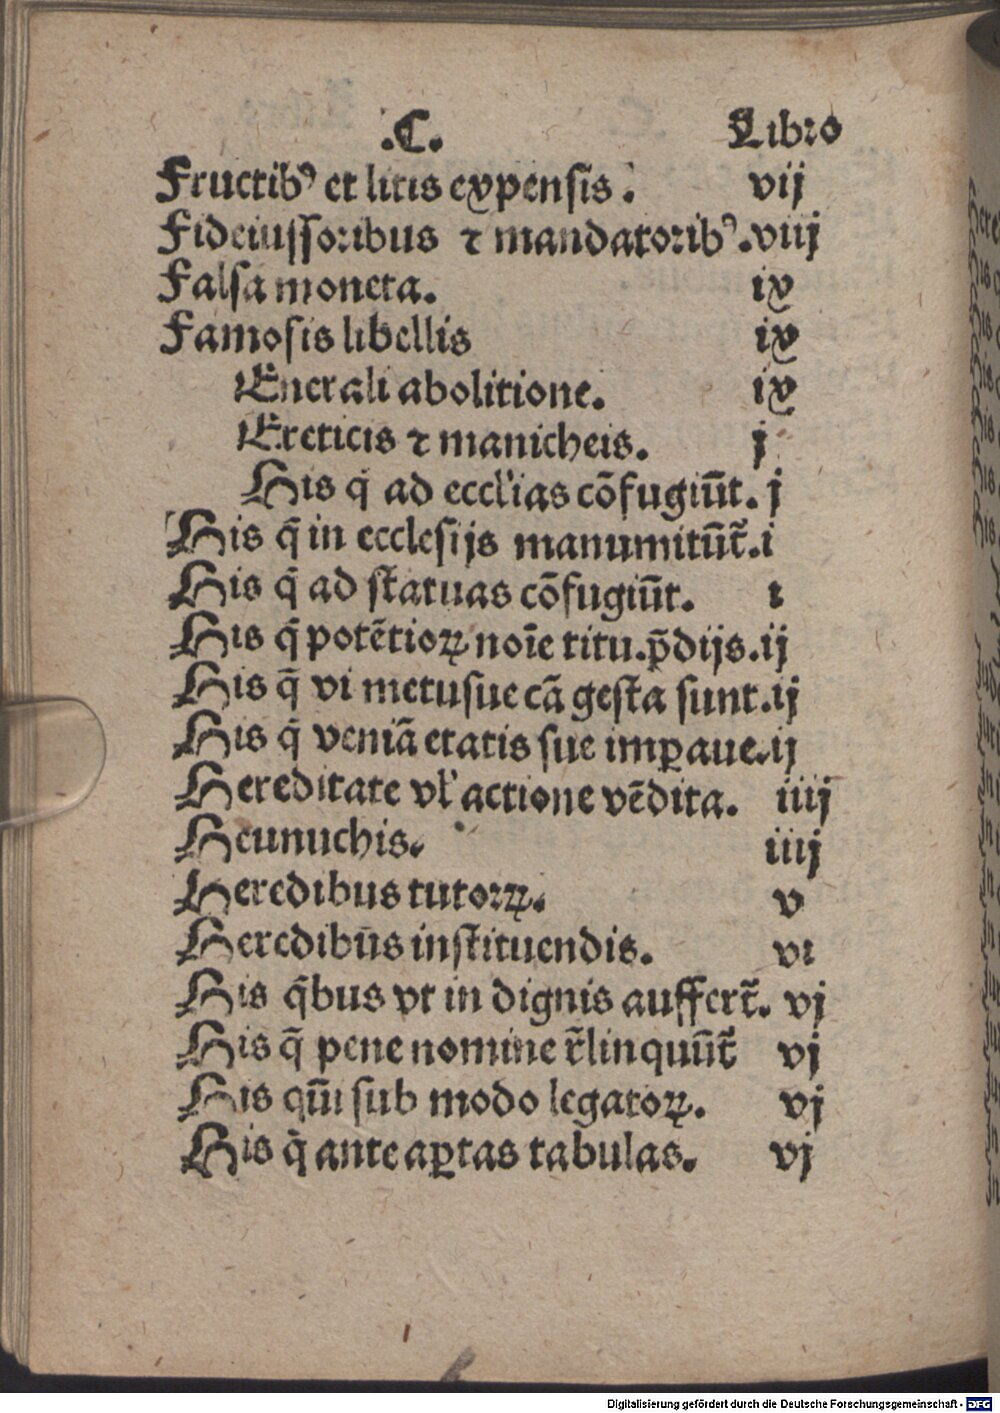 .C. Libro
Fructibꝰ et litis expensis. vij
Fideiussoribus ⁊ mandatoribꝰ. viij
Falsa moneta. ix
Famosis libellis ix
Enerali abolitione. ix
Ereticis ⁊ manicheis. j
His q̄ ad eccl'ias cōfugiūt. j
His q̄ in ecclesijs manumitūt̄. i
His q̄ ad statuas cōfugiūt. i
His q̄ potētioꝝ noīe titu. p̄dijs. ij
His q̄ vi metusue cā gesta sunt. ij
His q̄ veniā etatis sue imꝑaue. ij
Hereditate vl' actione vēdita. iiij
Heunuchis. iiij
Heredibus tutoꝝ. v
Heredibūs instituendis. vi
His q̄bus vt in dignis auffert̄. vj
His q̄ pene nomine r̄linquūt̄ vj
His sub modo legatoꝝ. vj
His q̄ ante aꝑtas tabulas. vj
Digitalisierung gefördert durch die Deutsche Forschungsgemeinschaft - DFG